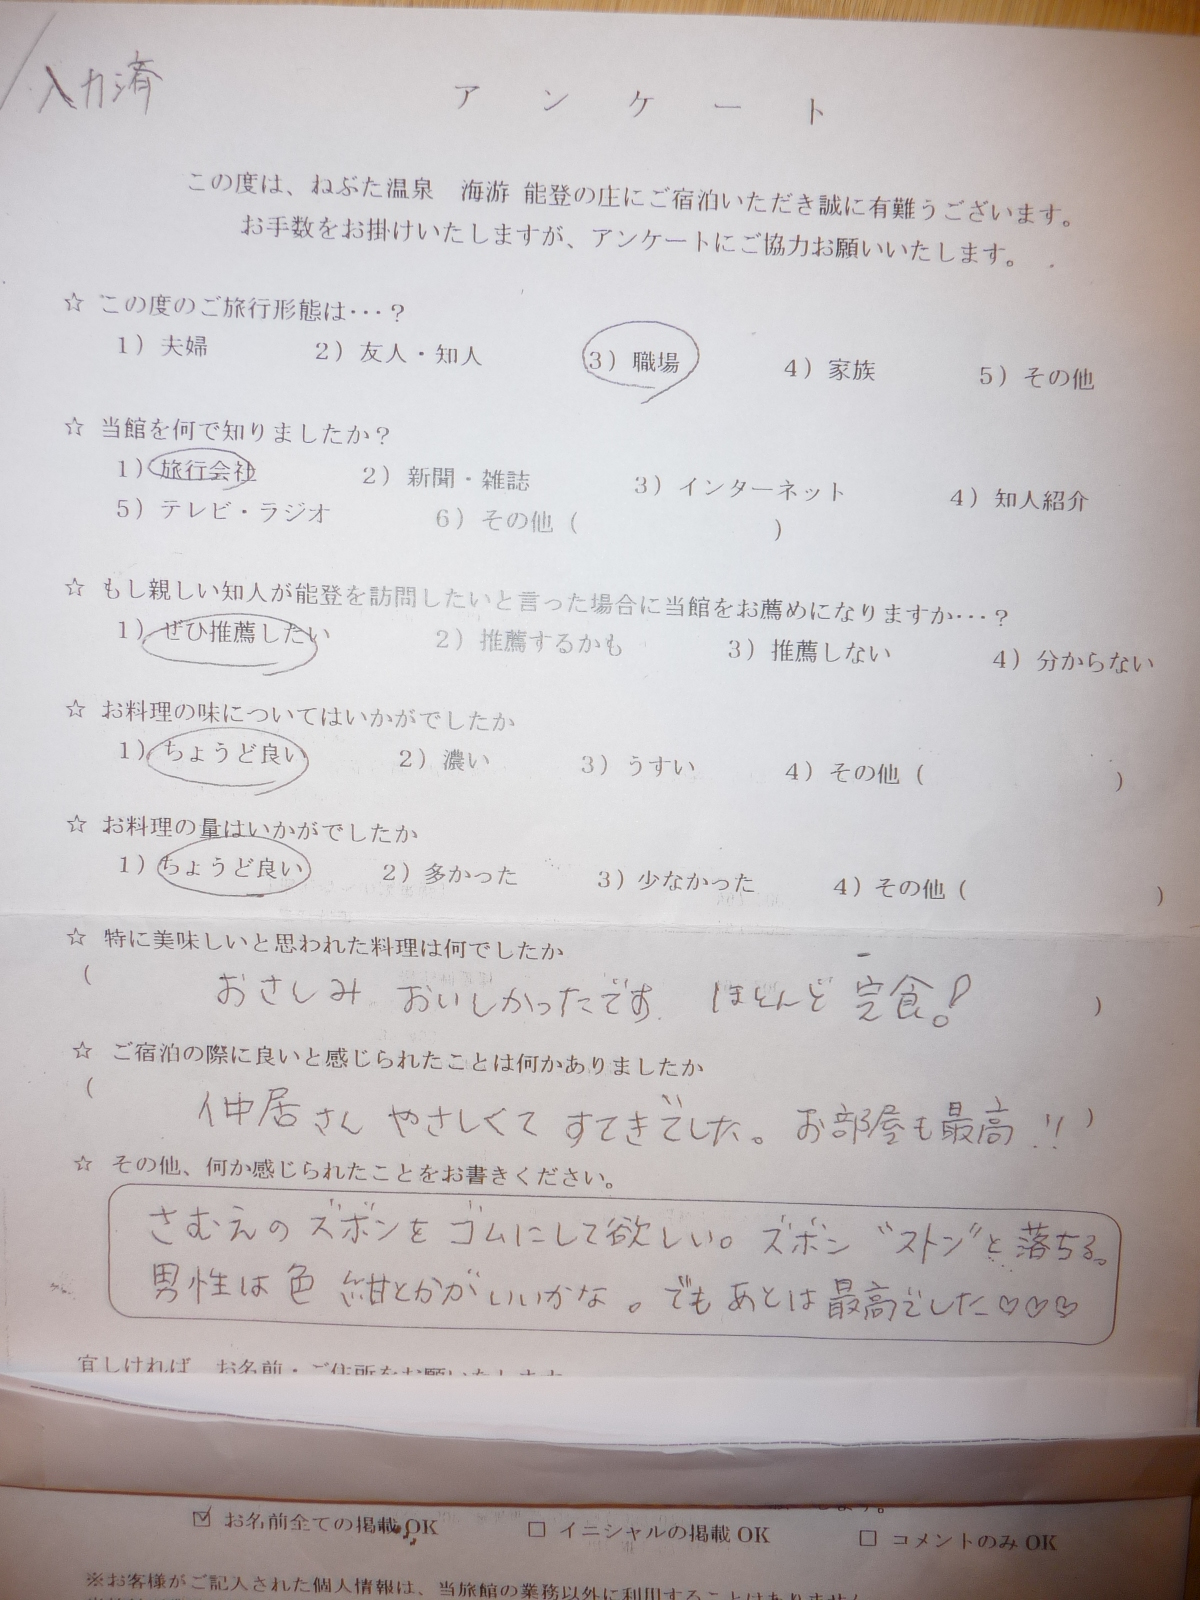 入力済
アンケート
この度は、ねぶた温泉　海游 能登の庄にご宿泊いただき誠に有難うございます。
お手数をお掛けいたしますが、アンケートにご協力お願いいたします。
☆ この度のご旅行形態は･･･？
1）夫婦　2）友人・知人　3）職場　4）家族　5）その他
☆ 当館を何で知りましたか？
1）旅行会社　2）新聞・雑誌　3）インターネット　4）知人紹介
5）テレビ・ラジオ　6）その他（　）
☆ もし親しい知人が能登を訪問したいと言った場合に当館をお薦めになりますか･･･？
1）ぜひ推薦したい　2）推薦するかも　3）推薦しない　4）分からない
☆ お料理の味についてはいかがでしたか
1）ちょうど良い　2）濃い　3）うすい　4）その他（　）
☆ お料理の量はいかがでしたか
1）ちょうど良い　2）多かった　3）少なかった　4）その他（　）
☆ 特に美味しいと思われた料理は何でしたか
（おさしみ おいしかったです. ほとんど完食!）
☆ ご宿泊の際に良いと感じられたことは何かありましたか
（仲居さん やさしくて すてきでした。お部屋も最高!!）
☆ その他、何か感じられたことをお書きください。
さむえの ズボンを ゴムにして欲しい。ズボン "ストン"と落ちる。
男性は色 紺とかがいいかな。でもあとは最高でした♡♡♡
宜しければ、お名前・ご住所をお願いいたします
します。
☑ お名前全ての掲載OK　□ イニシャルの掲載OK　□ コメントのみOK
※お客様がご記入された個人情報は、当旅館の業務以外に利用することはありません